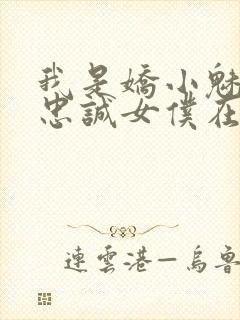 我是嬌小魅
忠誠女僕在
連雲港—烏魯